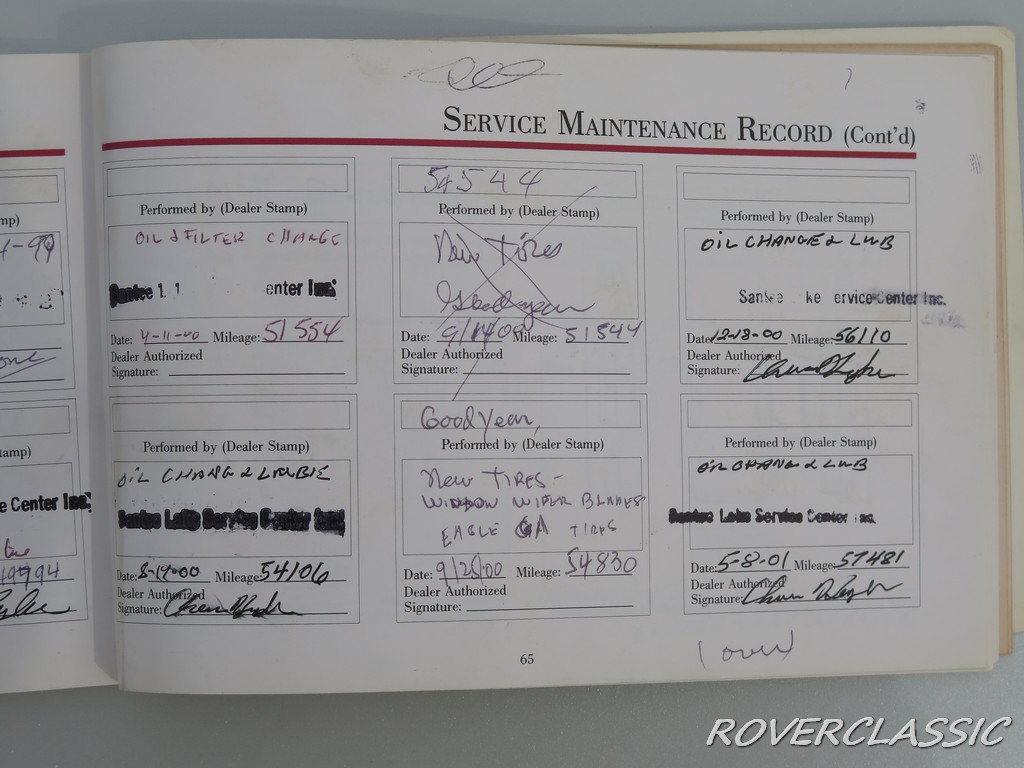 SERVICE MAINTENANCE RECORD (Cont'd)
mp)
4-99
tamp)
e Center Inc.
49994
Performed by (Dealer Stamp)
OIL & FILTER CHANGE
Santee enter Inc.
Date: 4-11-00 Mileage: 51554
Dealer Authorized
Signature:
Performed by (Dealer Stamp)
OIL CHANG & LUBIE
Santee Lake Service Center Inc.
Date: 8-19-00 Mileage: 54106
Dealer Authorized
Signature:
54544
Performed by (Dealer Stamp)
New Tires
Goodyear
Date: 9/14/00 Mileage: 51544
Dealer Authorized
Signature:
Good Year,
Performed by (Dealer Stamp)
New TIRES-
WINDOW WIPER BLADES
EAGLE GA TIRES
Date: 9/25/00 Mileage: 54830
Dealer Authorized
Signature:
Performed by (Dealer Stamp)
OIL CHANGE & LUB
Santee ke ervice Center Inc.
Date: 12-18-00 Mileage: 56110
Dealer Authorized
Signature:
Performed by (Dealer Stamp)
OIL CHANG & LUB
Santee Lake Service Center Inc.
Date: 5-8-01 Mileage: 57481
Dealer Authorized
Signature:
65
(over)
ROVERCLASSIC